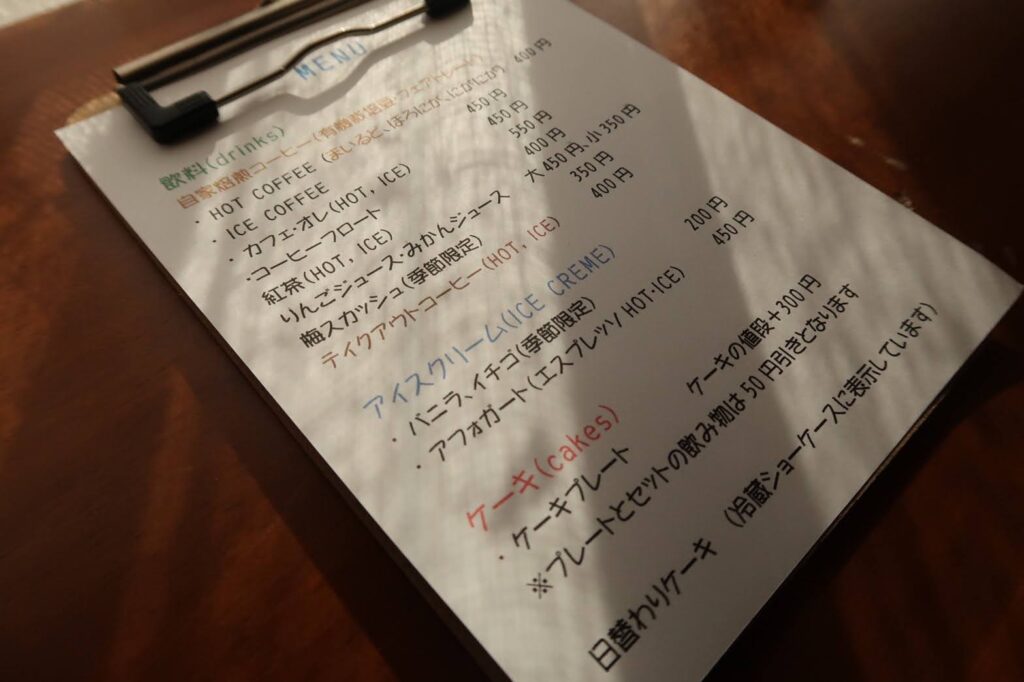 MENU
飲料(drinks)
自家焙煎コーヒー(有機栽培豆・フェアトレード)
・HOT COFFEE (まいるど、ほろにが、にがにが) 400円
・ICE COFFEE 450円
・カフェ・オレ(HOT, ICE) 450円
・コーヒーフロート 550円
紅茶(HOT, ICE) 400円
りんごジュース・みかんジュース 大450円、小350円
梅スカッシュ(季節限定) 350円
テイクアウトコーヒー(HOT, ICE) 400円
アイスクリーム(ICE CREME)
・バニラ、イチゴ(季節限定) 200円
・アフォガート(エスプレッソ HOT・ICE) 450円
ケーキ(cakes)
・ケーキプレート ケーキの値段＋300円
※プレートとセットの飲み物は50円引きとなります
日替わりケーキ (冷蔵ショーケースに表示しています)